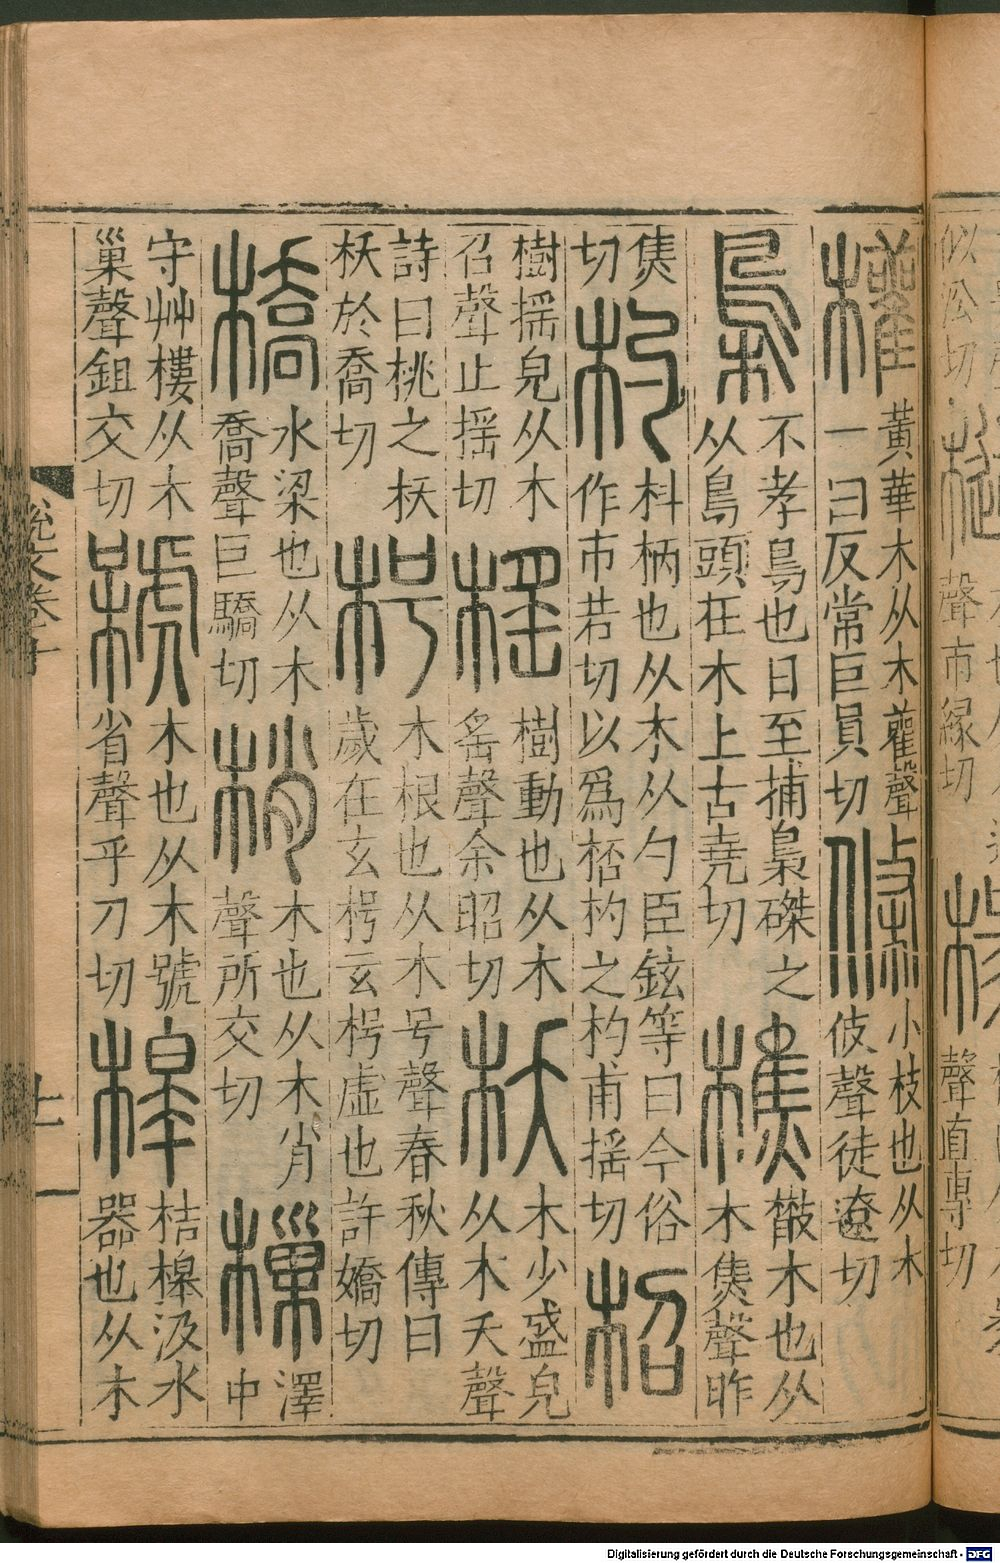 似㳂切
聲市緣切
聲直專切
權
黃華木从木雚聲
一曰反常巨員切
條
小枝也从木
攸聲徒遼切
梟
不孝鳥也日至捕梟磔之
从鳥頭在木上古堯切
樵
㪔木也从
木焦聲昨
焦
切
杓
枓柄也从木从勺臣鉉等曰今俗
作市若切以爲桮杓之杓甫揺切
柖
樹揺皃从木
召聲止揺切
榣
樹動也从木
䍃聲余昭切
枖
木少盛皃
从木夭聲
詩曰桃之枖
枖於喬切
枵
木根也从木号聲春秋傳曰
歲在玄枵玄枵虛也許嬌切
橋
水梁也从木
喬聲巨驕切
梢
木也从木肖
聲所交切
樔
澤
中
守艸樓从木
巢聲鉏交切
木也从木號
省聲乎刀切
槹
桔槹汲水
器也从木
說文卷十
十一
Digitalisierung gefördert durch die Deutsche Forschungsgemeinschaft - DFG